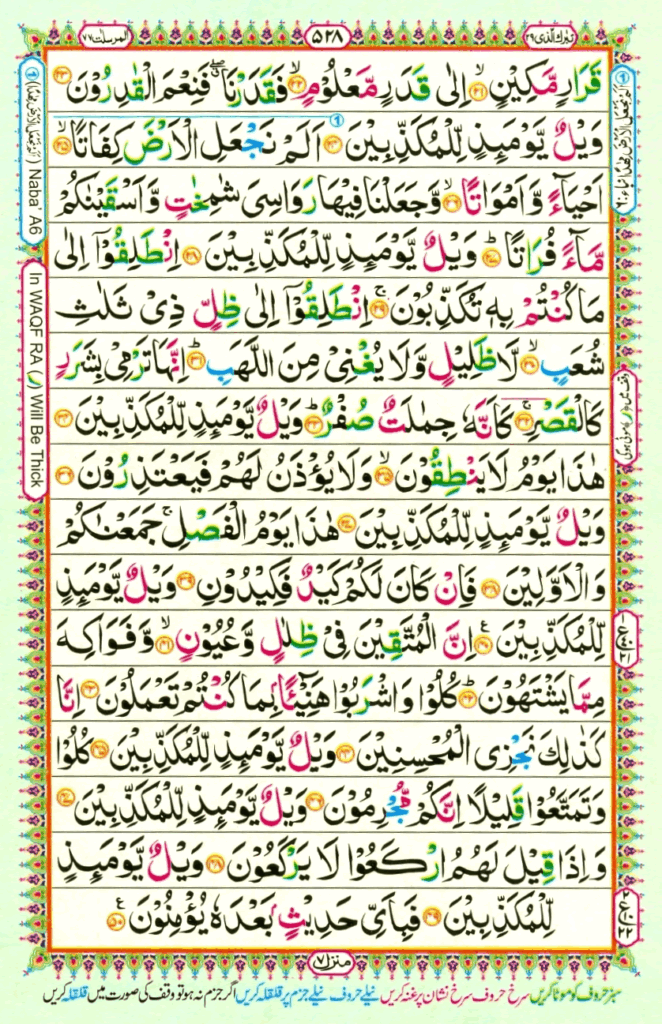 تبٰرك الذی ۲۹
۵۲۸
المرسلٰت ۷۷
قَرَارٍ مَّكِیْنٍ ﴿۲۱﴾ اِلٰی قَدَرٍ مَّعْلُوْمٍ ﴿۲۲﴾ فَقَدَرْنَا فَنِعْمَ الْقٰدِرُوْنَ ﴿۲۳﴾
وَیْلٌ یَّوْمَىِٕذٍ لِّلْمُكَذِّبِیْنَ ﴿۲۴﴾ اَلَمْ نَجْعَلِ الْاَرْضَ كِفَاتًا ﴿۲۵﴾
اَحْیَآءً وَّ اَمْوَاتًا ﴿۲۶﴾ وَّ جَعَلْنَا فِیْهَا رَوَاسِیَ شٰمِخٰتٍ وَّ اَسْقَیْنٰكُمْ
مَّآءً فُرَاتًا ﴿۲۷﴾ وَیْلٌ یَّوْمَىِٕذٍ لِّلْمُكَذِّبِیْنَ ﴿۲۸﴾ اِنْطَلِقُوْۤا اِلٰی
مَا كُنْتُمْ بِهٖ تُكَذِّبُوْنَ ﴿۲۹﴾ اِنْطَلِقُوْۤا اِلٰی ظِلٍّ ذِیْ ثَلٰثِ
شُعَبٍ ﴿۳۰﴾ لَّا ظَلِیْلٍ وَّ لَا یُغْنِیْ مِنَ اللَّهَبِ ﴿۳۱﴾ اِنَّهَا تَرْمِیْ بِشَرَرٍ
كَالْقَصْرِ ﴿۳۲﴾ كَاَنَّهٗ جِمٰلَتٌ صُفْرٌ ﴿۳۳﴾ وَیْلٌ یَّوْمَىِٕذٍ لِّلْمُكَذِّبِیْنَ ﴿۳۴﴾
هٰذَا یَوْمُ لَا یَنْطِقُوْنَ ﴿۳۵﴾ وَ لَا یُؤْذَنُ لَهُمْ فَیَعْتَذِرُوْنَ ﴿۳۶﴾
وَیْلٌ یَّوْمَىِٕذٍ لِّلْمُكَذِّبِیْنَ ﴿۳۷﴾ هٰذَا یَوْمُ الْفَصْلِ جَمَعْنٰكُمْ
وَ الْاَوَّلِیْنَ ﴿۳۸﴾ فَاِنْ كَانَ لَكُمْ كَیْدٌ فَكِیْدُوْنِ ﴿۳۹﴾ وَیْلٌ یَّوْمَىِٕذٍ
لِّلْمُكَذِّبِیْنَ ﴿۴۰﴾ اِنَّ الْمُتَّقِیْنَ فِیْ ظِلٰلٍ وَّ عُیُوْنٍ ﴿۴۱﴾ وَّ فَوَاكِهَ
مِمَّا یَشْتَهُوْنَ ﴿۴۲﴾ كُلُوْا وَ اشْرَبُوْا هَنِیْٓـًٔۢا بِمَا كُنْتُمْ تَعْمَلُوْنَ ﴿۴۳﴾ اِنَّا
كَذٰلِكَ نَجْزِی الْمُحْسِنِیْنَ ﴿۴۴﴾ وَیْلٌ یَّوْمَىِٕذٍ لِّلْمُكَذِّبِیْنَ ﴿۴۵﴾ كُلُوْا
وَ تَمَتَّعُوْا قَلِیْلًا اِنَّكُمْ مُّجْرِمُوْنَ ﴿۴۶﴾ وَیْلٌ یَّوْمَىِٕذٍ لِّلْمُكَذِّبِیْنَ ﴿۴۷﴾
وَ اِذَا قِیْلَ لَهُمُ ارْكَعُوْا لَا یَرْكَعُوْنَ ﴿۴۸﴾ وَیْلٌ یَّوْمَىِٕذٍ
لِّلْمُكَذِّبِیْنَ ﴿۴۹﴾ فَبِاَیِّ حَدِیْثٍۭ بَعْدَهٗ یُؤْمِنُوْنَ ﴿۵۰﴾
منزل ۷
سبز حروف کو موٹا کریں سرخ حروف سرخ نشان پر غنہ کریں نیلے حروف نیلے جزم پر قلقلہ کریں اگر جزم نہ ہو تو وقف کی صورت میں قلقلہ کریں
(اَلَمْ نَجْعَلِ الْاَرْضَ مِهٰدًا) Naba' A6
In WAQF RA (ر) Will Be Thick